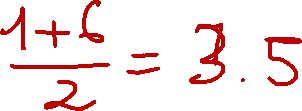 \frac{1+6}{2} = 3.5